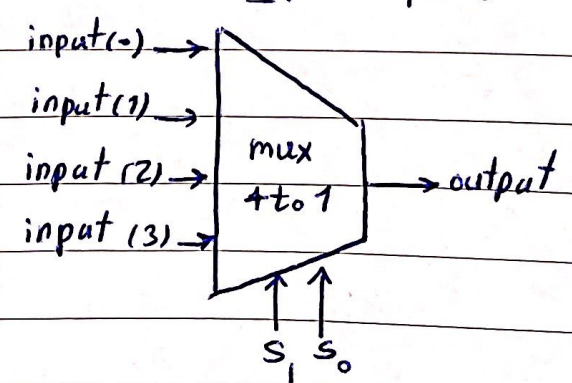 input(0)
input(1)
input (2)
input (3)
mux
4 to 1
output
S1 S0